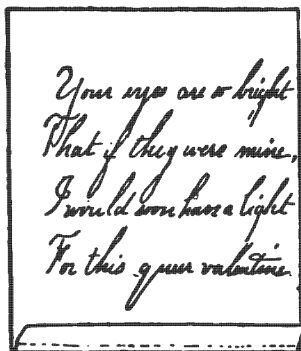 Your eyes are so bright
That if they were mine,
I would soon have a light
For this queer valentine.